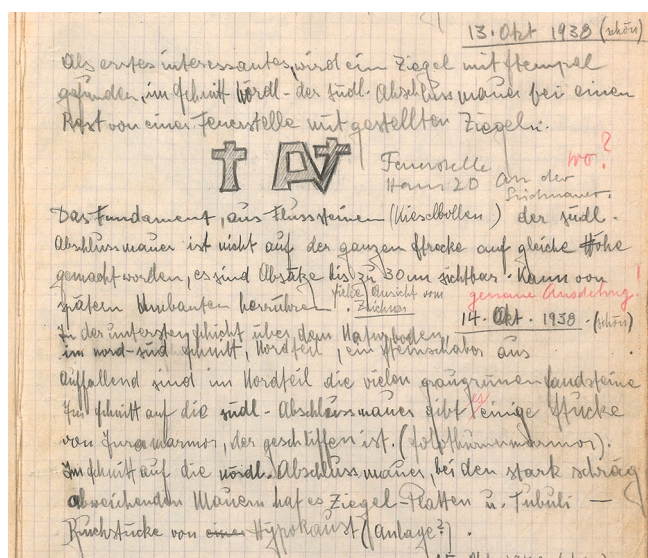 13. Okt 1938 (schön)
Als erstes interessantes, wird ein Ziegel mit Stempel
gefunden, im Schnitt nördl- der südl. Abschlussmauer bei einen
Rest von einer Feuerstelle mit gestellten Ziegeln.
Feuerstelle wo?
Haus 20 an der
Südmauer.
Das Fundament, aus Flusssteinen (Kieselbollen) der südl-
Abschlussmauer ist nicht auf der ganzen Strecke auf gleiche Höhe
gemacht worden, es sind Absätze bis zu 30 cm sichtbar. Kann von
spätern Umbauten herrühren. siehe Ansicht vom Zeichner genaue Ausdehng!
14. Okt. 1938. (schön)
In der untersten Schicht über dem Naturboden,
im nord-süd Schnitt, Nordteil, ein Steinschaber aus
Auffallend sind im Nordteil die vielen graugrünen Sandsteine
Im Schnitt auf die südl- Abschlussmauer gibt es einige Stücke
von Juramarmor, der geschliffen ist. (Solothurnermarmor).
Im Schnitt auf die nördl. Abschlussmauer, bei den stark schräg
abweichenden Mauern hat es Ziegel-Platten u. Tubuli —
Bruchstücke von einer Hypokaust (Anlage?).